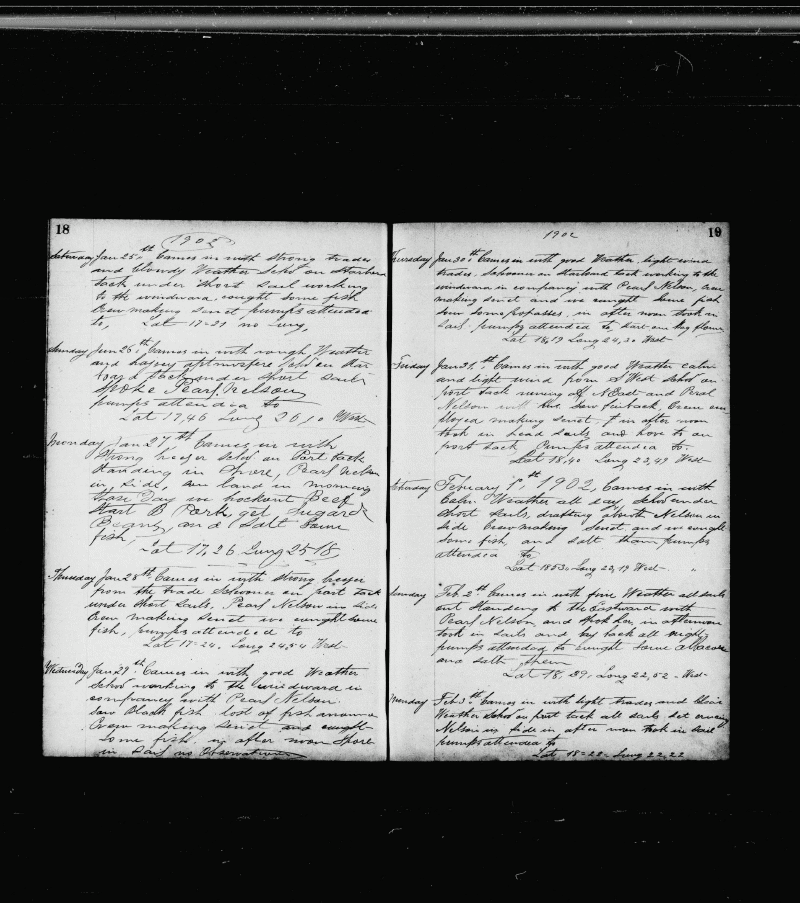 18
1902
Saturday Jan 25th Comes in with strong trades
and Clowdy Weather Scho' on Starboard
tack under Short sail working
to the windward. caught some fish
Crew making Senet pumps attended
to, Lat 17-21 no Lung,
Sunday Jan 26th Comes in with rough Weather
and hasey Scho' on Star
tack under short sails
spoke Pearl Nelson
pumps attended to
Lat 17,46 Lung 26,10 West
Monday Jan 27th Comes in with
Strong breeser Scho' on Port tack
Standing in Shore, Pearl Nelson
in Side, land in morning
Day we Beef
B Pork get Sugar &
Beans, and Salt Some
fish,
Lat 17,26 Lung 25 18,
Thuesday Jan 28th Comes in with strong breeser
from the trade Schooner on port tack
under Short Sails, Pearl Nelson in Side
Crew making Senet we caught some
fish, pumps attended to
Lat 17-24. Long 24,54 West-
Wednesday Jan 29th Comes in with good Weather
Scho' working to the windward in
companey with Pearl Nelson.
Saw Black fish lost of fish
Crew making Senet and caught
Some fish, in after noon Shore
in Sail no Observation
1902
19
Thuresday Jan 30th Comes in with good Weather light wind
trades. Schooner on Starboard tack working to the
windward in companey with Pearl Nelson, Crew
making senet and we caught Some fish
Saw some propasses. in after noon took in
Sail pumps attended to,
Lat 18,19 Long 24,30 West-
Friday Jan 31th Comes in with good Weather calm
and light wind from S West Scho' on
port tack and Perel
Nelson Saw finback, Crew em
ployed making senet. In after noon
took in head sails and hove to on
port tack Pumps attended to-
Lat 18,40 Long 23,49 West-
Saturday Febuary 1st 1902 Comes in with
Calm Weather all day Scho' under
Short Sails, drafting North Nelson in
Side Crew making Senet and we caught
Some fish, and Salt tham pumps
attended to
Lat 1853 Long 23,19 West-
Sunday Feb. 2th Comes in with fine Weather all sails
out Standing to the Eastward with
Pearl Nelson and Spok her, in afternoon
took in sails and lay back all night,
pumps attended to caught Some
and salt them
Lat 18,39, Long 22,52 - West
Munday Feb 3th Comes in with light trades and Clear
Weather Scho' on port tack all sails set
Nelson in Side in after noon took in sail
pumps attended to
Lat 18-22- Lung 22,22